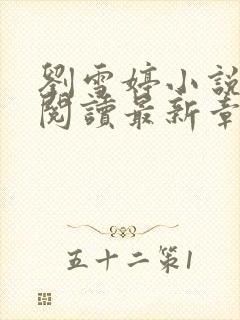 劉雪婷小說
閱讀最新章
五十二第1